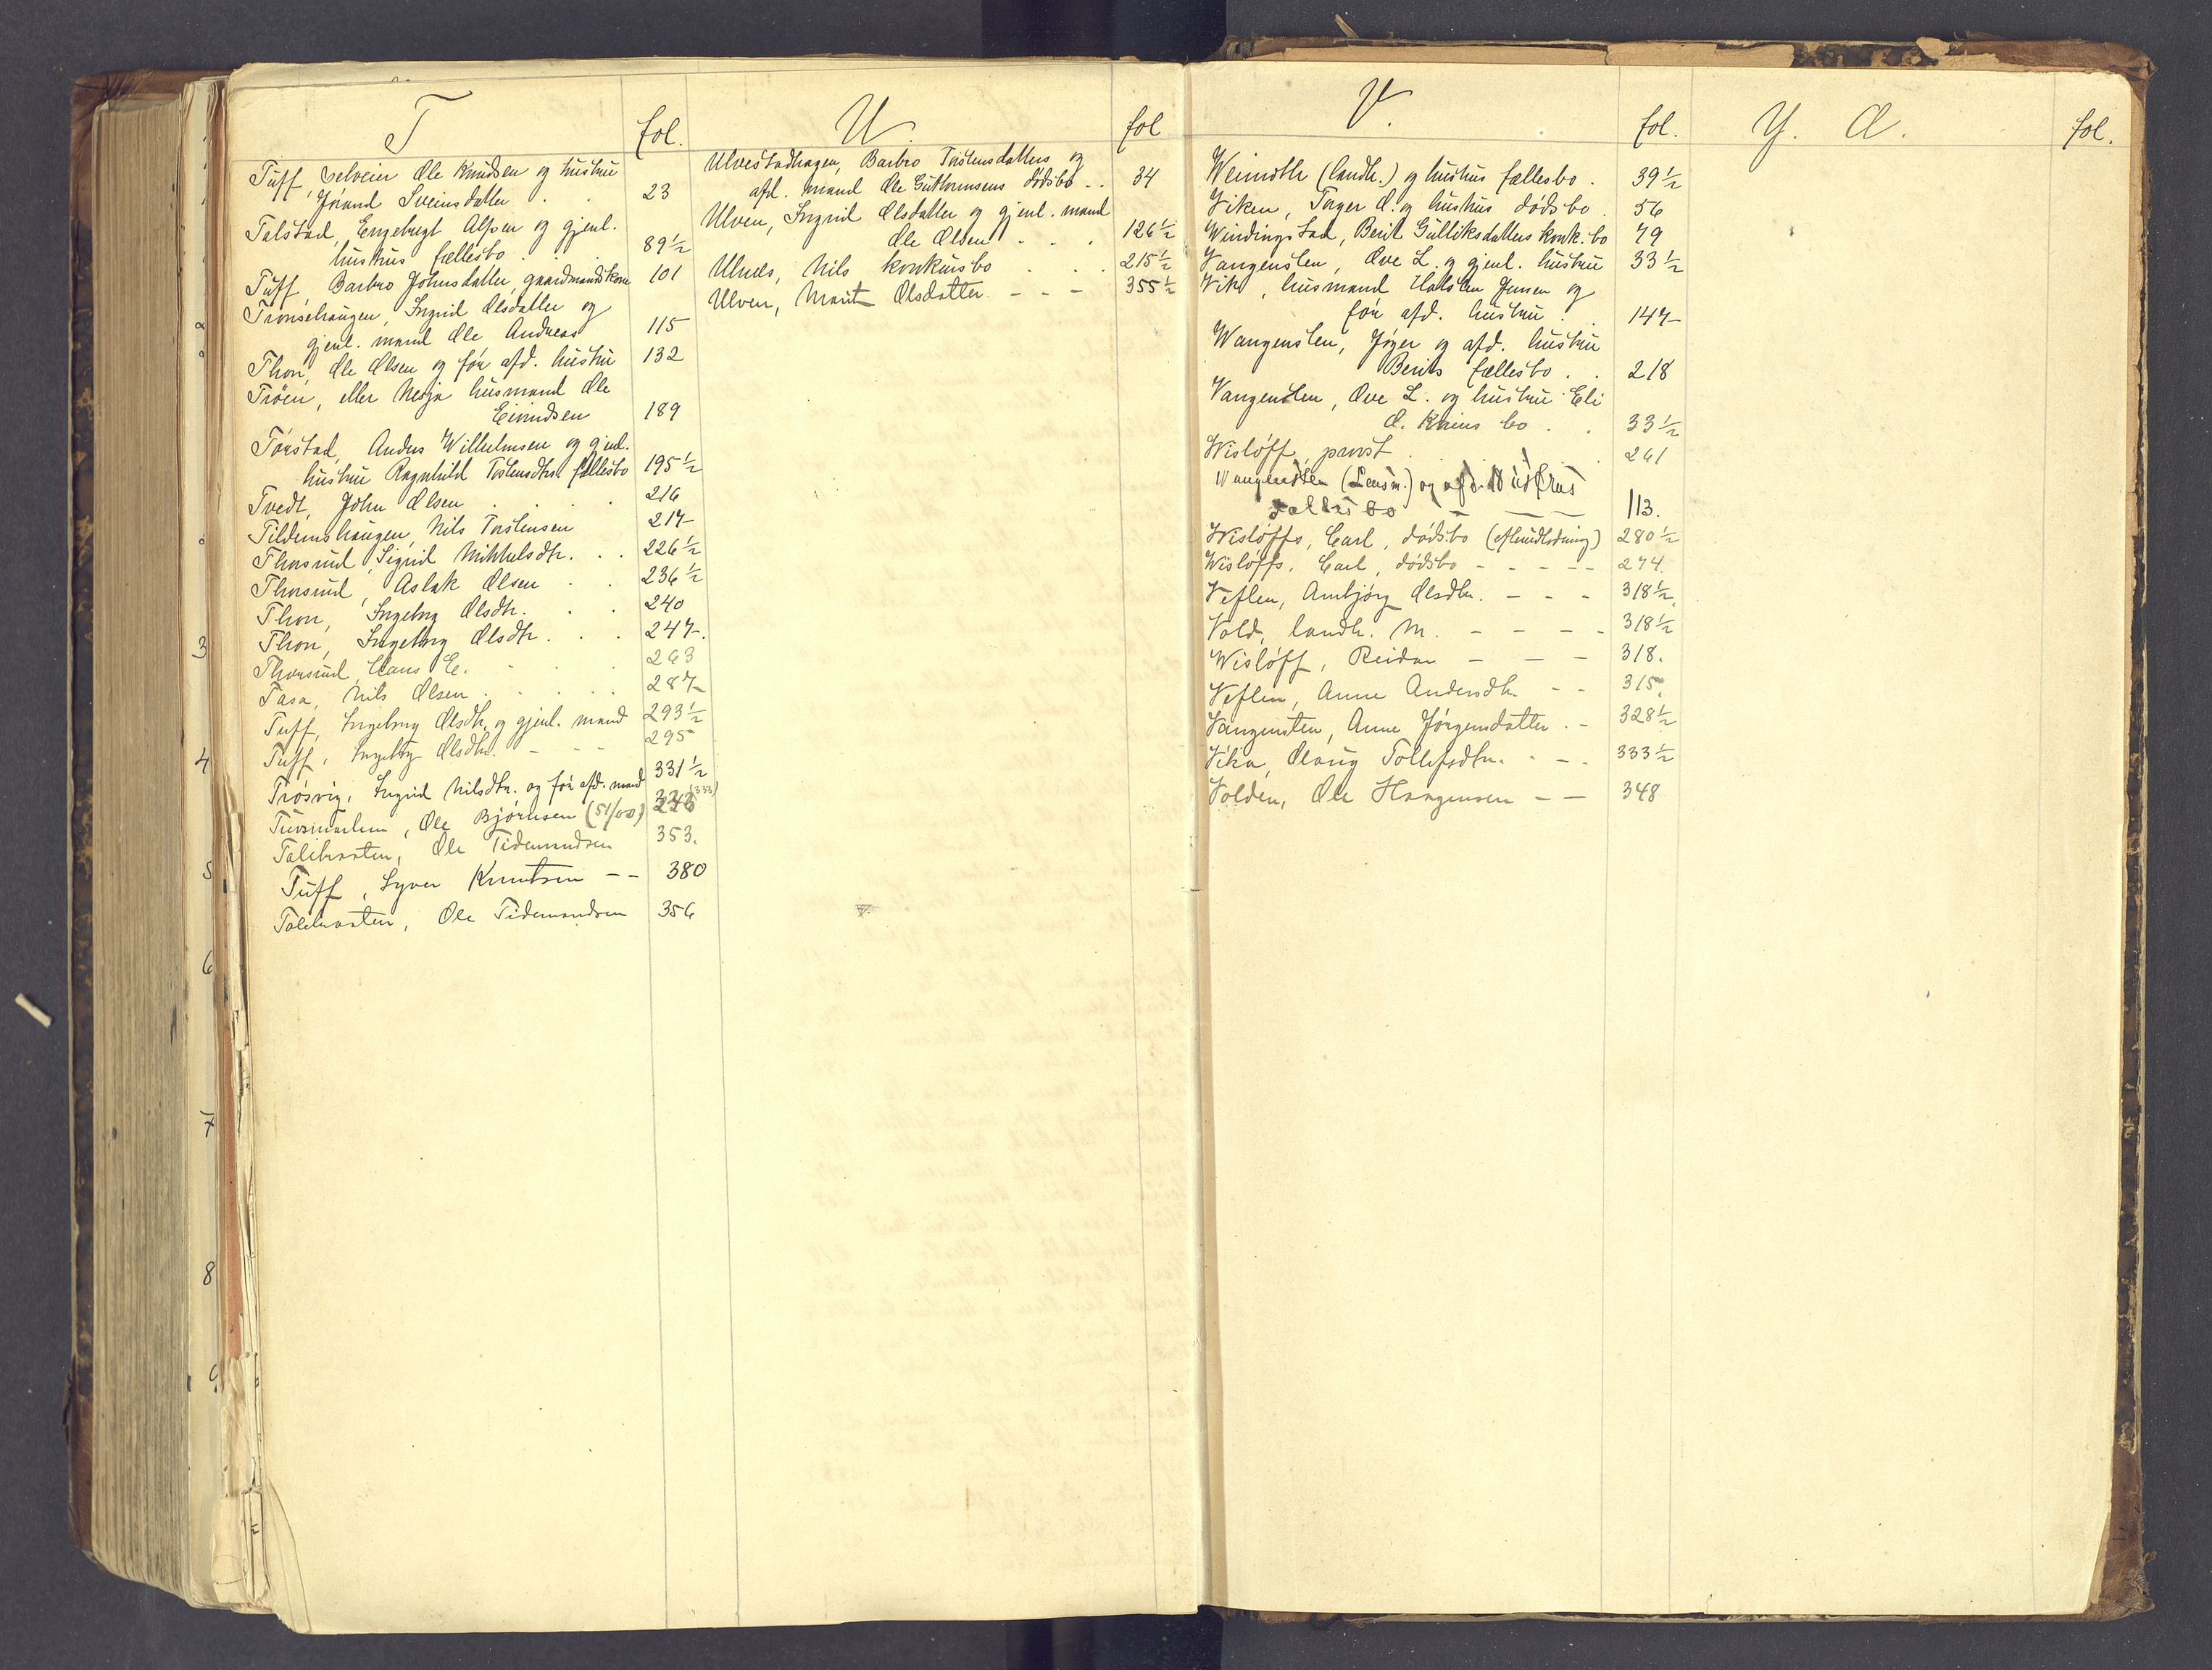 T fol.
Tuff, selveier Ole Knudsen og hustru
Jørand Sveinsdatter . . 23
Talstad, Engebrigt Alfsen og gjenl.
hustrus fællesbo . . 89½
Tuff, Barbro Johnsdatter, gaardmandskone 101
Tronsehaugen, Ingrid Olsdatter og
gjenl. mand Ole Andreas 115
Thon, Ole Olsen og før afd. hustru 132
Trøen, eller Nesja husmand Ole
Eivindsen 189
Tørstad, Anders Wilhelmsen og gjenl.
hustru Ragnhild Tostensdtrs fællesbo 195½
Tvedt, John Olsen . . . 216
Tildemshaugen, Nils Torstensen 217
Thorsrud, Sigrid Mikkelsdtr. . . 226½
Thorsrud, Aslak Olsen . . 236½
Thon, Ingeborg Olsdtr. . . 240
Thon, Ingeborg Olsdtr. . . 247.
Thorsrud, Claus E. . . . 263
Tasa, Nils Olsen . . . . 287
Tuff, Ingeborg Olsdtr. og gjenl. mand 293½
Tuff, Ingebog Olsdtr. - - - 295
Trøsvig, Ingrid Nilsdtr. og før afd. mand 331½
Ole Bjørnsen (51/00) (333)
Ole Tidemandsen 353.
Tuff, Syver Knutsen -- 380
Ole Tidemandsen 356
U fol
Ulvestadhagen, Barbro Tostensdatters og
afd. mand Ole Guthormsens dødsbo . . 34
Ulven, Ingrid Olsdatter og gjenl. mand
Ole Olsen . . . 126½
Ulnes, Nils konkursbo . . . 215½
Ulven, Marit Olsdatter - - - 355½
V. fol.
Weinoth (landh.) og hustrus fællesbo . 39½
Viken, Torger O. og hustrus dødsbo . 56
Windingstad, Berit Gulliksdatters konk.bo 79
Vangensten, Ove L. og gjenl. hustru 33½
Vik, husmand Halsten Jensen og
før afd. hustru . . 147
Wangensten, Jøger og afd. hustru
Berits fællesbo . . 218
Vangensten, Ove L. og hustru Eli
O. Kneins bo . . 33½
Wisløff, provst . . . 261
Wangensten (Lensm.) og afd. Hustrus
Fællesbo - - - 113.
Wisløffs, Carl, dødsbo 280½
Wisløffs, Carl, dødsbo - - - - - 274.
Veflen, Ambjørg Olsdtr. - - - 318½.
Vold, landh. M. - - - - 318½
Wisløff, Reidar - - - 318.
Veflen, Anne Andersdtr. - - 315.
Vangensten, Anne Jørgensdatter . - 328½
Vika, Olaug Tollefsdtr. - - . 333½
Volden, Ole Haagensen - - 348
Y. Ø. fol.
3
4
5
6
7
8